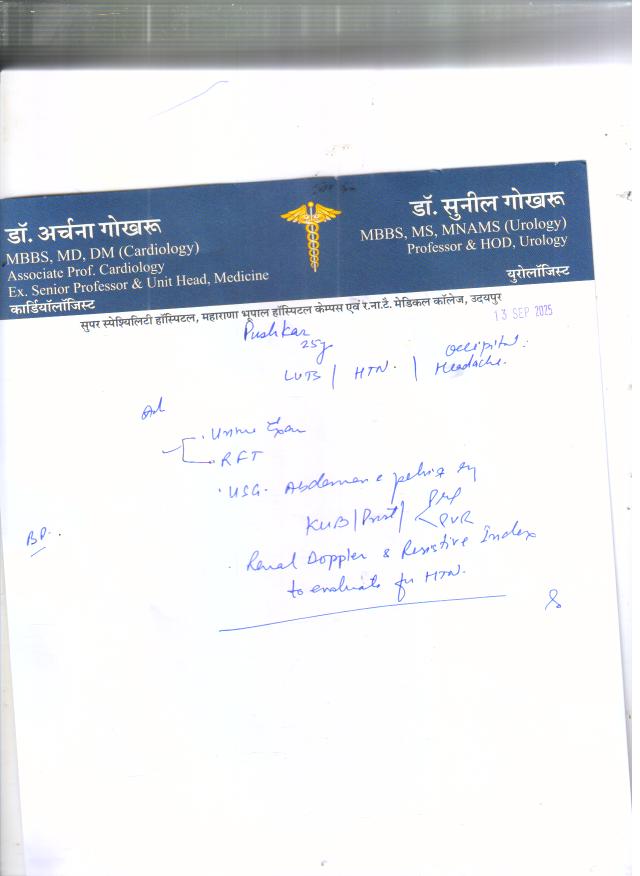 डॉ. अर्चना गोखरू
MBBS, MD, DM (Cardiology)
Associate Prof. Cardiology
Ex. Senior Professor & Unit Head, Medicine
कार्डियॉलॉजिस्ट
डॉ. सुनील गोखरू
MBBS, MS, MNAMS (Urology)
Professor & HOD, Urology
युरोलॉजिस्ट
सुपर स्पेश्यिलिटी हॉस्पिटल, महाराणा भूपाल हॉस्पिटल केम्पस एवं र.ना.टै. मेडिकल कॉलेज, उदयपुर
13 SEP 2025
Pushkar
25y
LUTS | HTN. | Occipital Headache.
Adv
. Urine Exam
. RFT
. USG. Abdomen & pelvis
KUB | Prost | Pre
PVR
BP.
. Renal Doppler & Resistive Index
to evaluate for HTN.